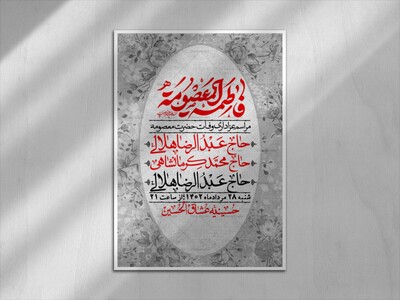 فاطمه المعصومه
مراسم عزاداری وفات حضرت معصومه
حاج عبدالرضا هلالی
حاج محمد کرمانشاهی
حاج عبدالرضا هلالی
شنبه ۲۸ مردادماه ۱۴۰۲ | از ساعت ۲۱
حسینیه عشاق الحسین